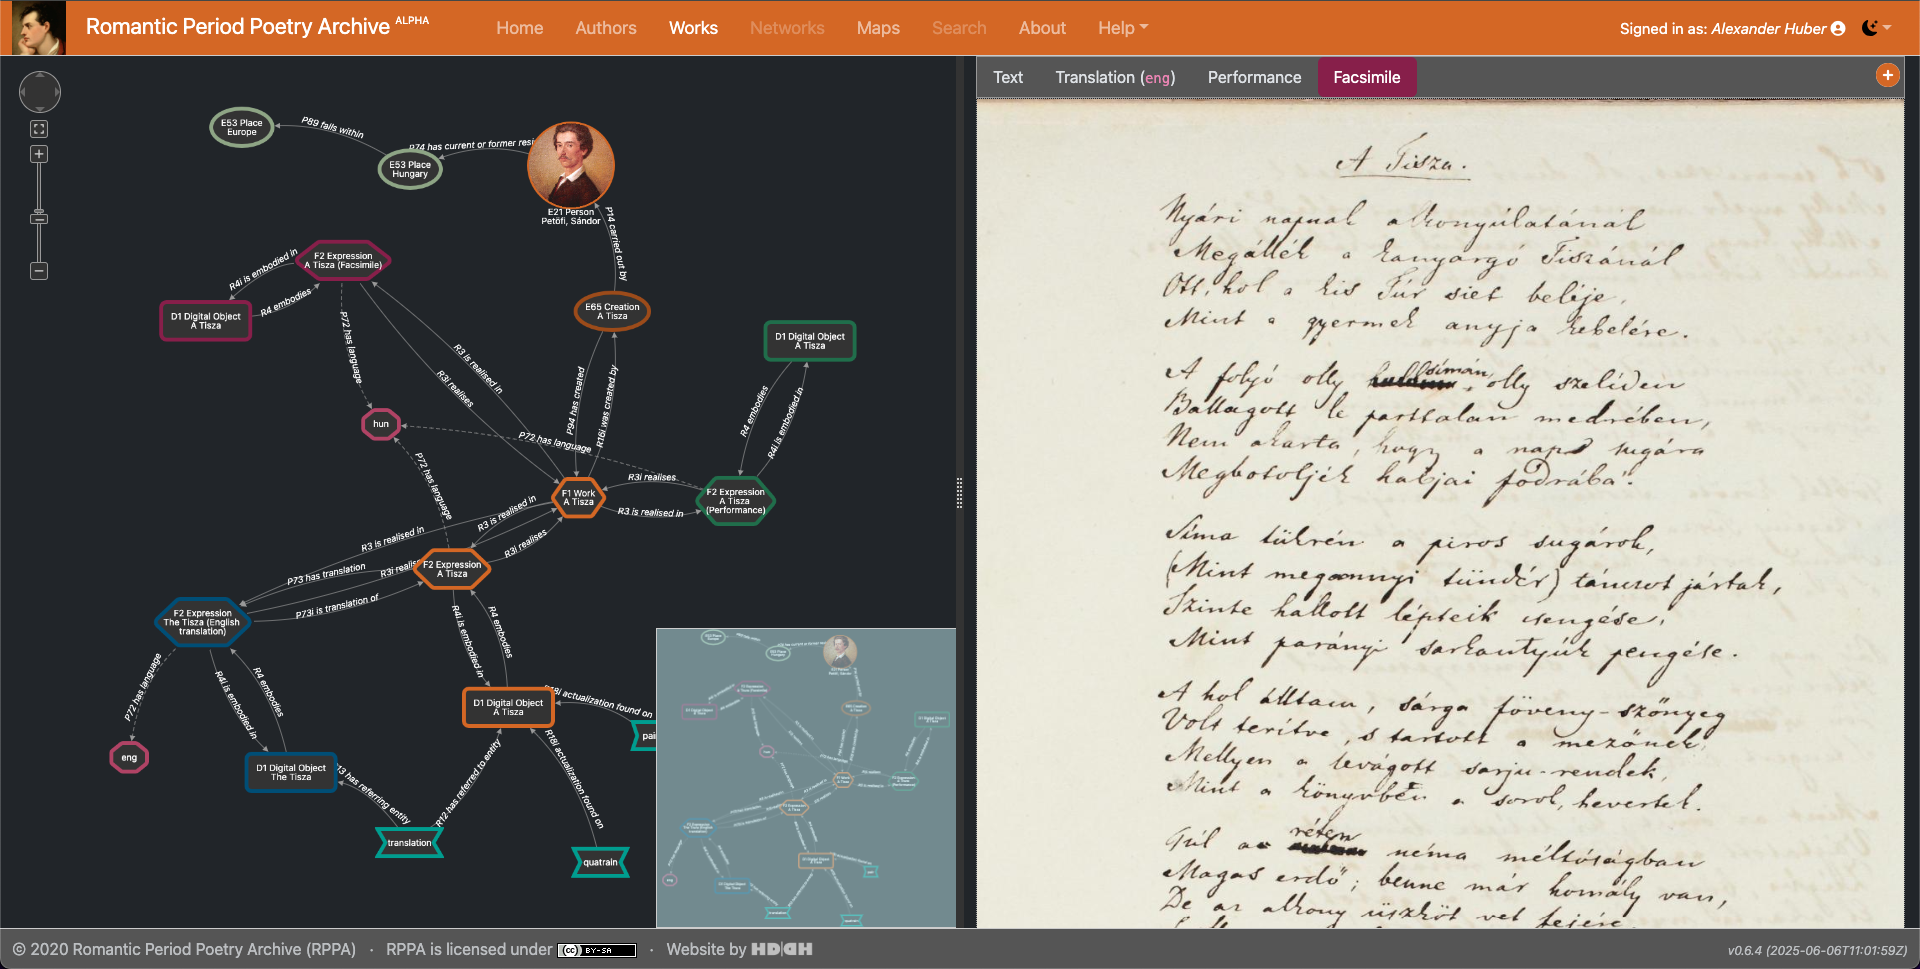 Romantic Period Poetry Archive ALPHA
Home Authors Works Networks Maps Search About Help
Signed in as: Alexander Huber
E53 Place
Europe
P89 falls within
E53 Place
Hungary
P74 has current or former resi
E21 Person
Petőfi, Sándor
P14 carried out by
E65 Creation
A Tisza
F2 Expression
A Tisza (Facsimile)
R4i is embodied in
R4 embodies
D1 Digital Object
A Tisza
P72 has language
R3 is realised in
R3i realises
P94 has created
R16i was created by
D1 Digital Object
A Tisza
R4 embodies
R4i is embodied in
hun
P72 has language
P72 has language
F1 Work
A Tisza
R3i realises
R3 is realised in
F2 Expression
A Tisza
(Performance)
R3 is realised in
R3 is realised in
R3i realises
F2 Expression
A Tisza
P73 has translation
R3i realis
P73i is translation of
F2 Expression
The Tisza (English
translation)
P72 has language
R4i is embodied in
R4 embodies
R4i is embodied in
R4 embodies
D1 Digital Object
A Tisza
R18i actualization found on
pair
eng
D1 Digital Object
The Tisza
R13 has referring entity
R12 has referred to entity
R18i actualization found on
translation
quatrain
Text Translation (eng) Performance Facsimile
A Tisza.
Nyári napnak alkonyúlatánál
Megállék a kanyargó Tiszánál
Ott, hol a kis Túr siet beléje,
Mint a gyermek anyja kebelére.
A folyó olly simán, olly szelíden
Ballagott le parttalan medrében,
Nem akarta, hogy a nap sugára
Megbotoljék habjai fodrába'.
Síma tükrén a piros sugárok,
(Mint megannyi tündér) tánczot jártak,
Szinte hallott lépteik csengése,
Mint parányi sarkantyúk pengése.
A hol álltam, sárga föveny-szőnyeg
Volt terítve, s tartott a mezőnek,
Mellyen a levágott sarju-rendek,
Mint a könyvben a sorok, hevertek.
Túl a réten néma méltóságban
Magas erdő; benne már homály van,
De az alkony üszköt vet fejére,
© 2020 Romantic Period Poetry Archive (RPPA) · RPPA is licensed under CC BY-SA · Website by HD|DH
v0.6.4 (2025-06-06T11:01:59Z)